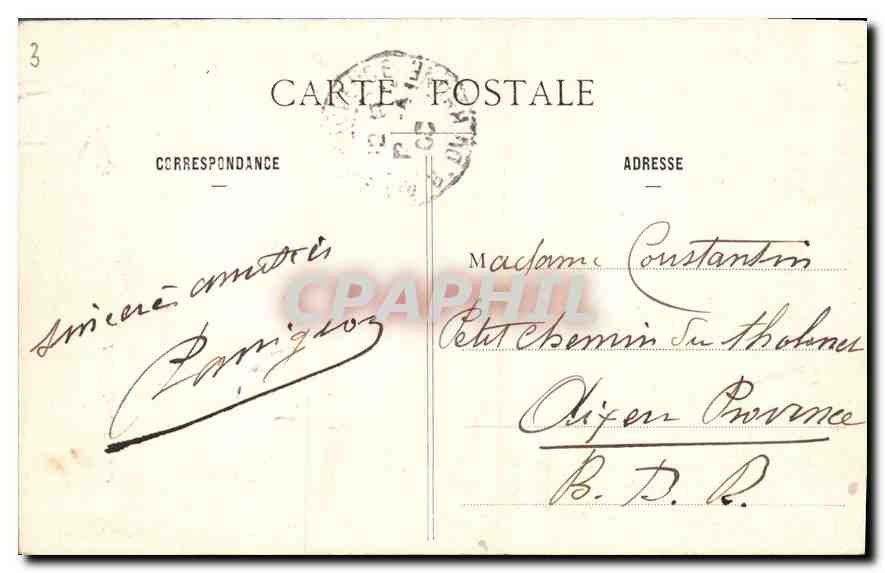 3
CARTE POSTALE
CORRESPONDANCE
ADRESSE
sincères amitiés
Madame Constantin
Petit Chemin du Tholonet
Aix en Provence
B. D. R.
CPAPHIL